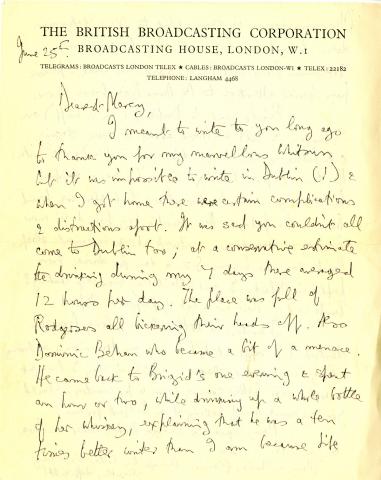 THE BRITISH BROADCASTING CORPORATION
BROADCASTING HOUSE, LONDON, W.1
TELEGRAMS: BROADCASTS LONDON TELEX ★ CABLES: BROADCASTS LONDON-W1 ★ TELEX: 22182
TELEPHONE: LANGHAM 4468
June 25th
Dearest Mercy,
I meant to write to you long ago
to thank you for my marvellous Whitsun.
But it was impossible to write in Dublin (!) &
when I got home there were certain complications
& distractions afoot. It was sad you couldn't all
come to Dublin too; at a conservative estimate
the drinking during my 7 days there averaged
12 hours per day. The place was full of
Rodgerses all bickering their heads off. Also
Dominic Behan who became a bit of a menace.
He came back to Brigid's one evening & spent
an hour or two, while drinking up a whole bottle
of her whiskey, explaining that he was a ten
times better writer than I am because life